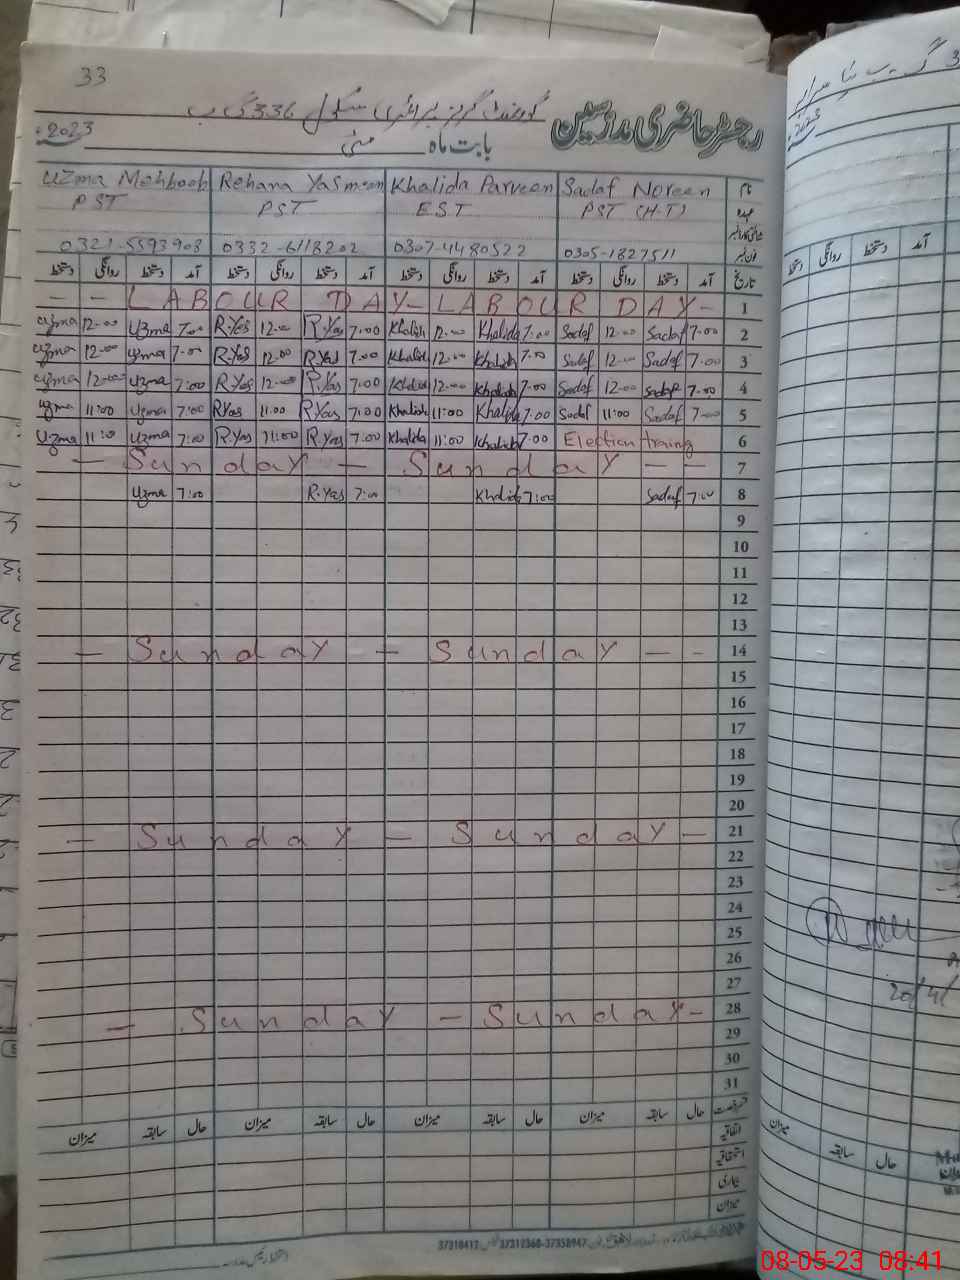 33
گورنمنٹ گرلز پرائمری سکول 336 گ ب
رجسٹر حاضری مدرسین
بابت ماہ مئی 2023ء
Uzma Mehboob Rehana Yasmeen Khalida Parveen Sadaf Noreen نام
PST PST EST PST (H.T) عہدہ
شناختی کارڈ نمبر
0321-5593903 0332-6118202 0307-4480522 0305-1827511 فون نمبر
دستخط روانگی دستخط آمد دستخط روانگی دستخط آمد دستخط روانگی دستخط آمد دستخط روانگی دستخط آمد تاریخ
- - LABOUR DAY - LABOUR DAY - 1
Uzma 12:00 Uzma 7:00 R.Yas 12:00 R.Yas 7:00 Khalida 12:00 Khalida 7:00 Sadaf 12:00 Sadaf 7:00 2
Uzma 12:00 Uzma 7:00 R.Yas 12:00 R.Yas 7:00 Khalida 12:00 Khalida 7:00 Sadaf 12:00 Sadaf 7:00 3
Uzma 12:00 Uzma 7:00 R.Yas 12:00 R.Yas 7:00 Khalida 12:00 Khalida 7:00 Sadaf 12:00 Sadaf 7:00 4
Uzma 11:00 Uzma 7:00 R.Yas 11:00 R.Yas 7:00 Khalida 11:00 Khalida 7:00 Sadaf 11:00 Sadaf 7:00 5
Uzma 11:00 Uzma 7:00 R.Yas 11:00 R.Yas 7:00 Khalida 11:00 Khalida 7:00 Election training 6
- Sunday - Sunday - - 7
Uzma 7:00 R.Yas 7:00 Khalida 7:00 Sadaf 7:00 8
9
10
11
12
13
- Sunday - Sunday - - 14
15
16
17
18
19
20
- Sunday - Sunday - 21
22
23
24
25
26
27
- Sunday - Sunday - 28
29
30
31
میزان سابقہ حال میزان سابقہ حال میزان سابقہ حال میزان سابقہ حال رخصت
اتفاقیہ
استحقاقیہ
بیماری
میزان
37310412 37312360-37358947
دستخط روانگی دستخط آمد
20/4/
میزان سابقہ حال
08-05-23 08:41